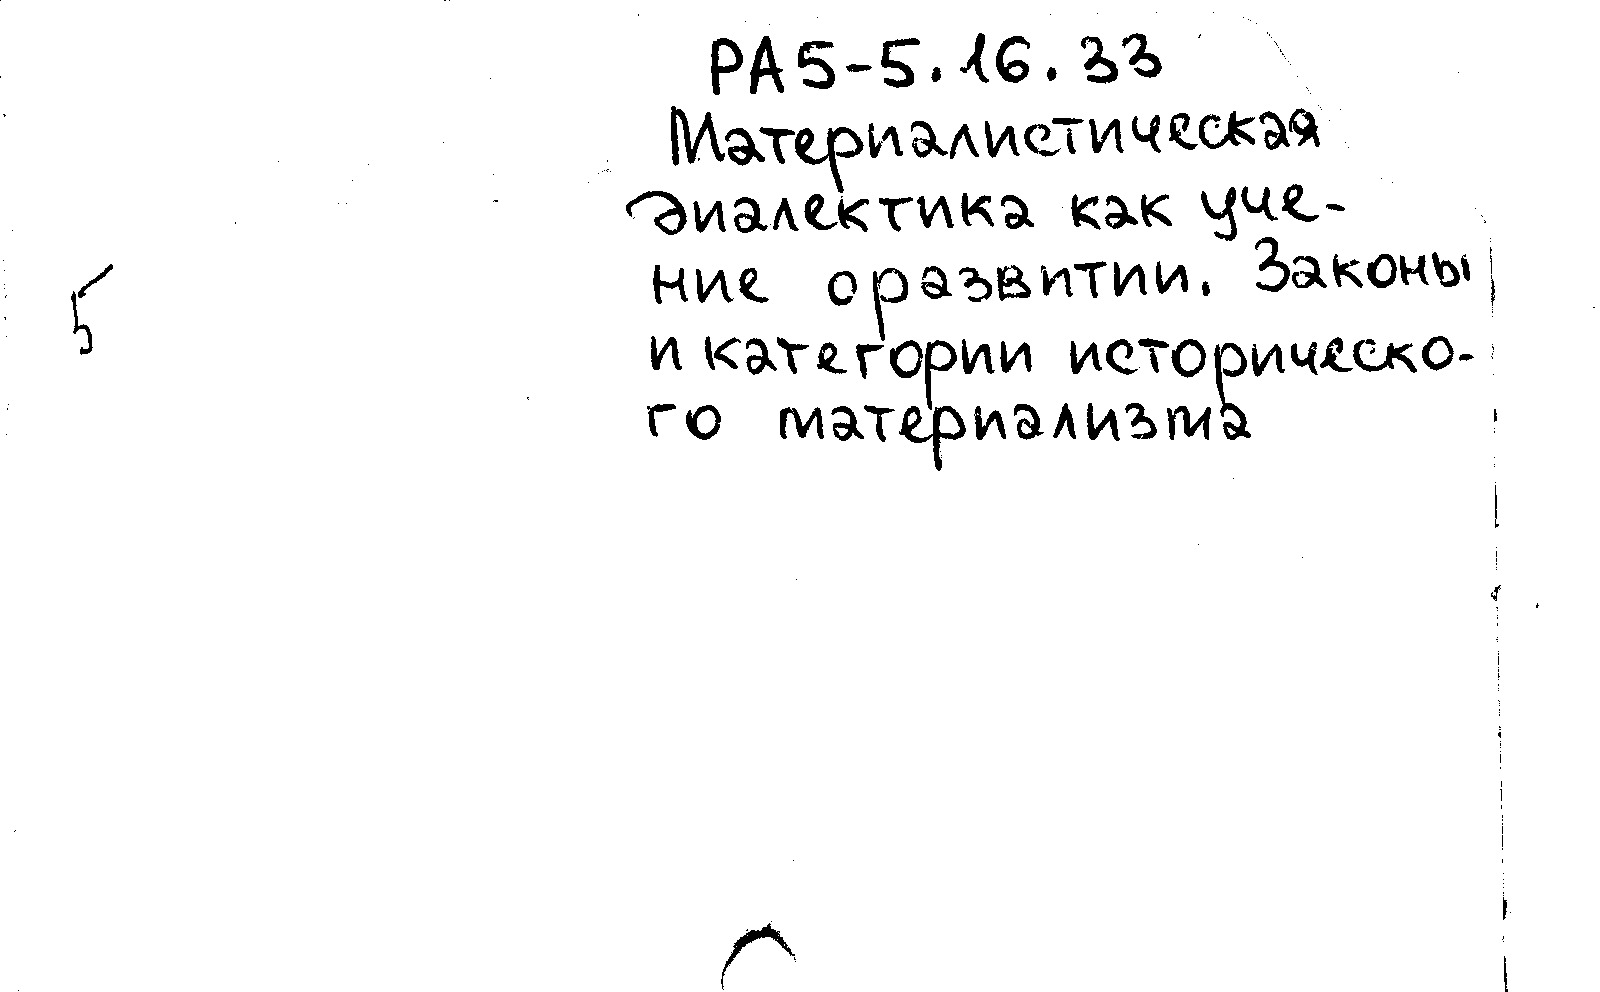 РА5-5.16.33
Материалистическая
диалектика как уче-
ние о развитии. Законы
5
и категории историческо-
го материализма